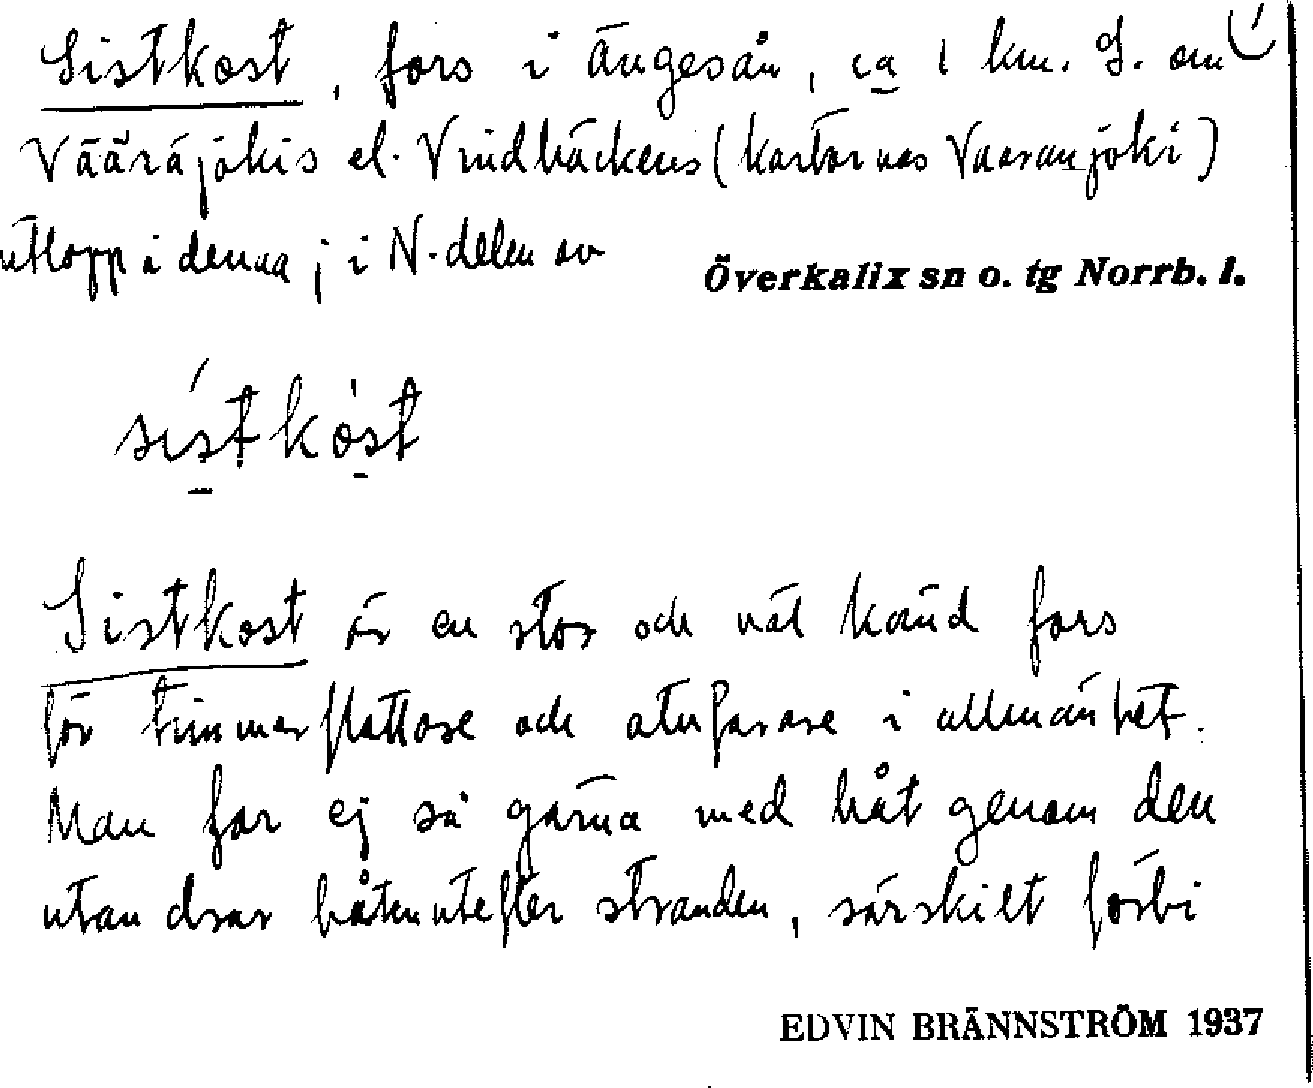 Sistkost, fors i Ängesån, ca 1 km. S. om
Vääräjokis el. Vridbäckens (kartornas Vaaranjoki)
utlopp i denna; i N-delen av
Överkalix sn o. tg Norrb. l.
sistkòst
Sistkost är en stor och väl känd fors
för timmerflottare och älvfarare i allmänhet.
Man far ej så gärna med båt genom den
utan drar båten utefter stranden, särskilt förbi
EDVIN BRÄNNSTRÖM 1937